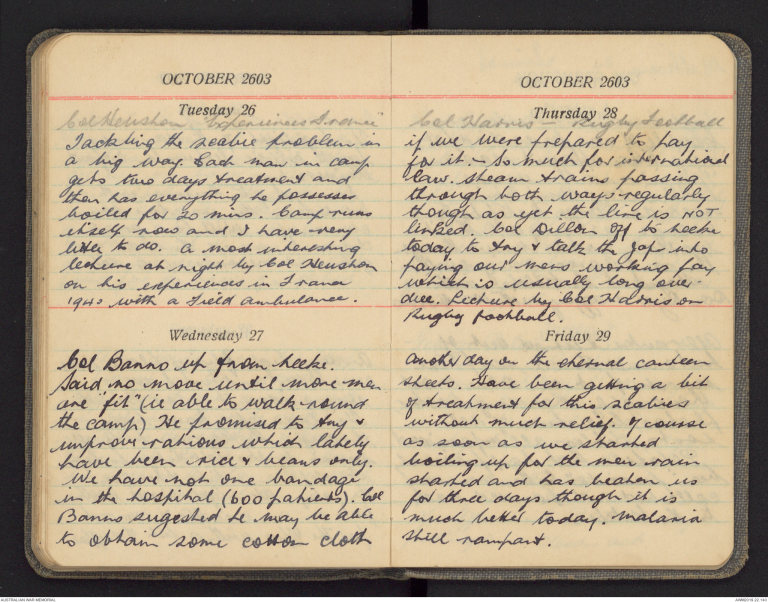 OCTOBER 2603
Tuesday 26
Col Heushom Experiences France
Tackling the scabie problem in
a big way. Each man in camp
gets two days treatment and
then has everything he possesses
boiled for 20 mins. Camp runs
itself now and I have very
little to do. A most interesting
lecture at night by Col Heushom
on his experiences in France
1940 with a Field ambulance.
Wednesday 27
Col Banno up from Neeke.
Said no move until more men
are "fit" (ie able to walk round
the camp) He promised to try &
improve rations which lately
have been rice & beans only.
We have not one bandage
in the hospital (600 patients). Col
Banno sugested he may be able
to obtain some cotton cloth
OCTOBER 2603
Thursday 28
Col Harris - Rugby Football
if we were prepared to pay
for it :- So much for international
law. Steam trains passing
through both ways regularly
though as yet the line is NOT
linked. Col Dillon off to Neeke
today to try & talk the Japs into
paying our mens working pay
which is usually long over-
due. Lecture by Col Harris on
Rugby football.
Friday 29
Another day on the eternal canteen
sheets. Have been getting a bit
of treatment for this scabies
without much relief. Of course
as soon as we started
boiling up for the men rain
started and has beaten us
for three days though it is
much better today. Malaria
still rampant.
AUSTRALIAN WAR MEMORIAL